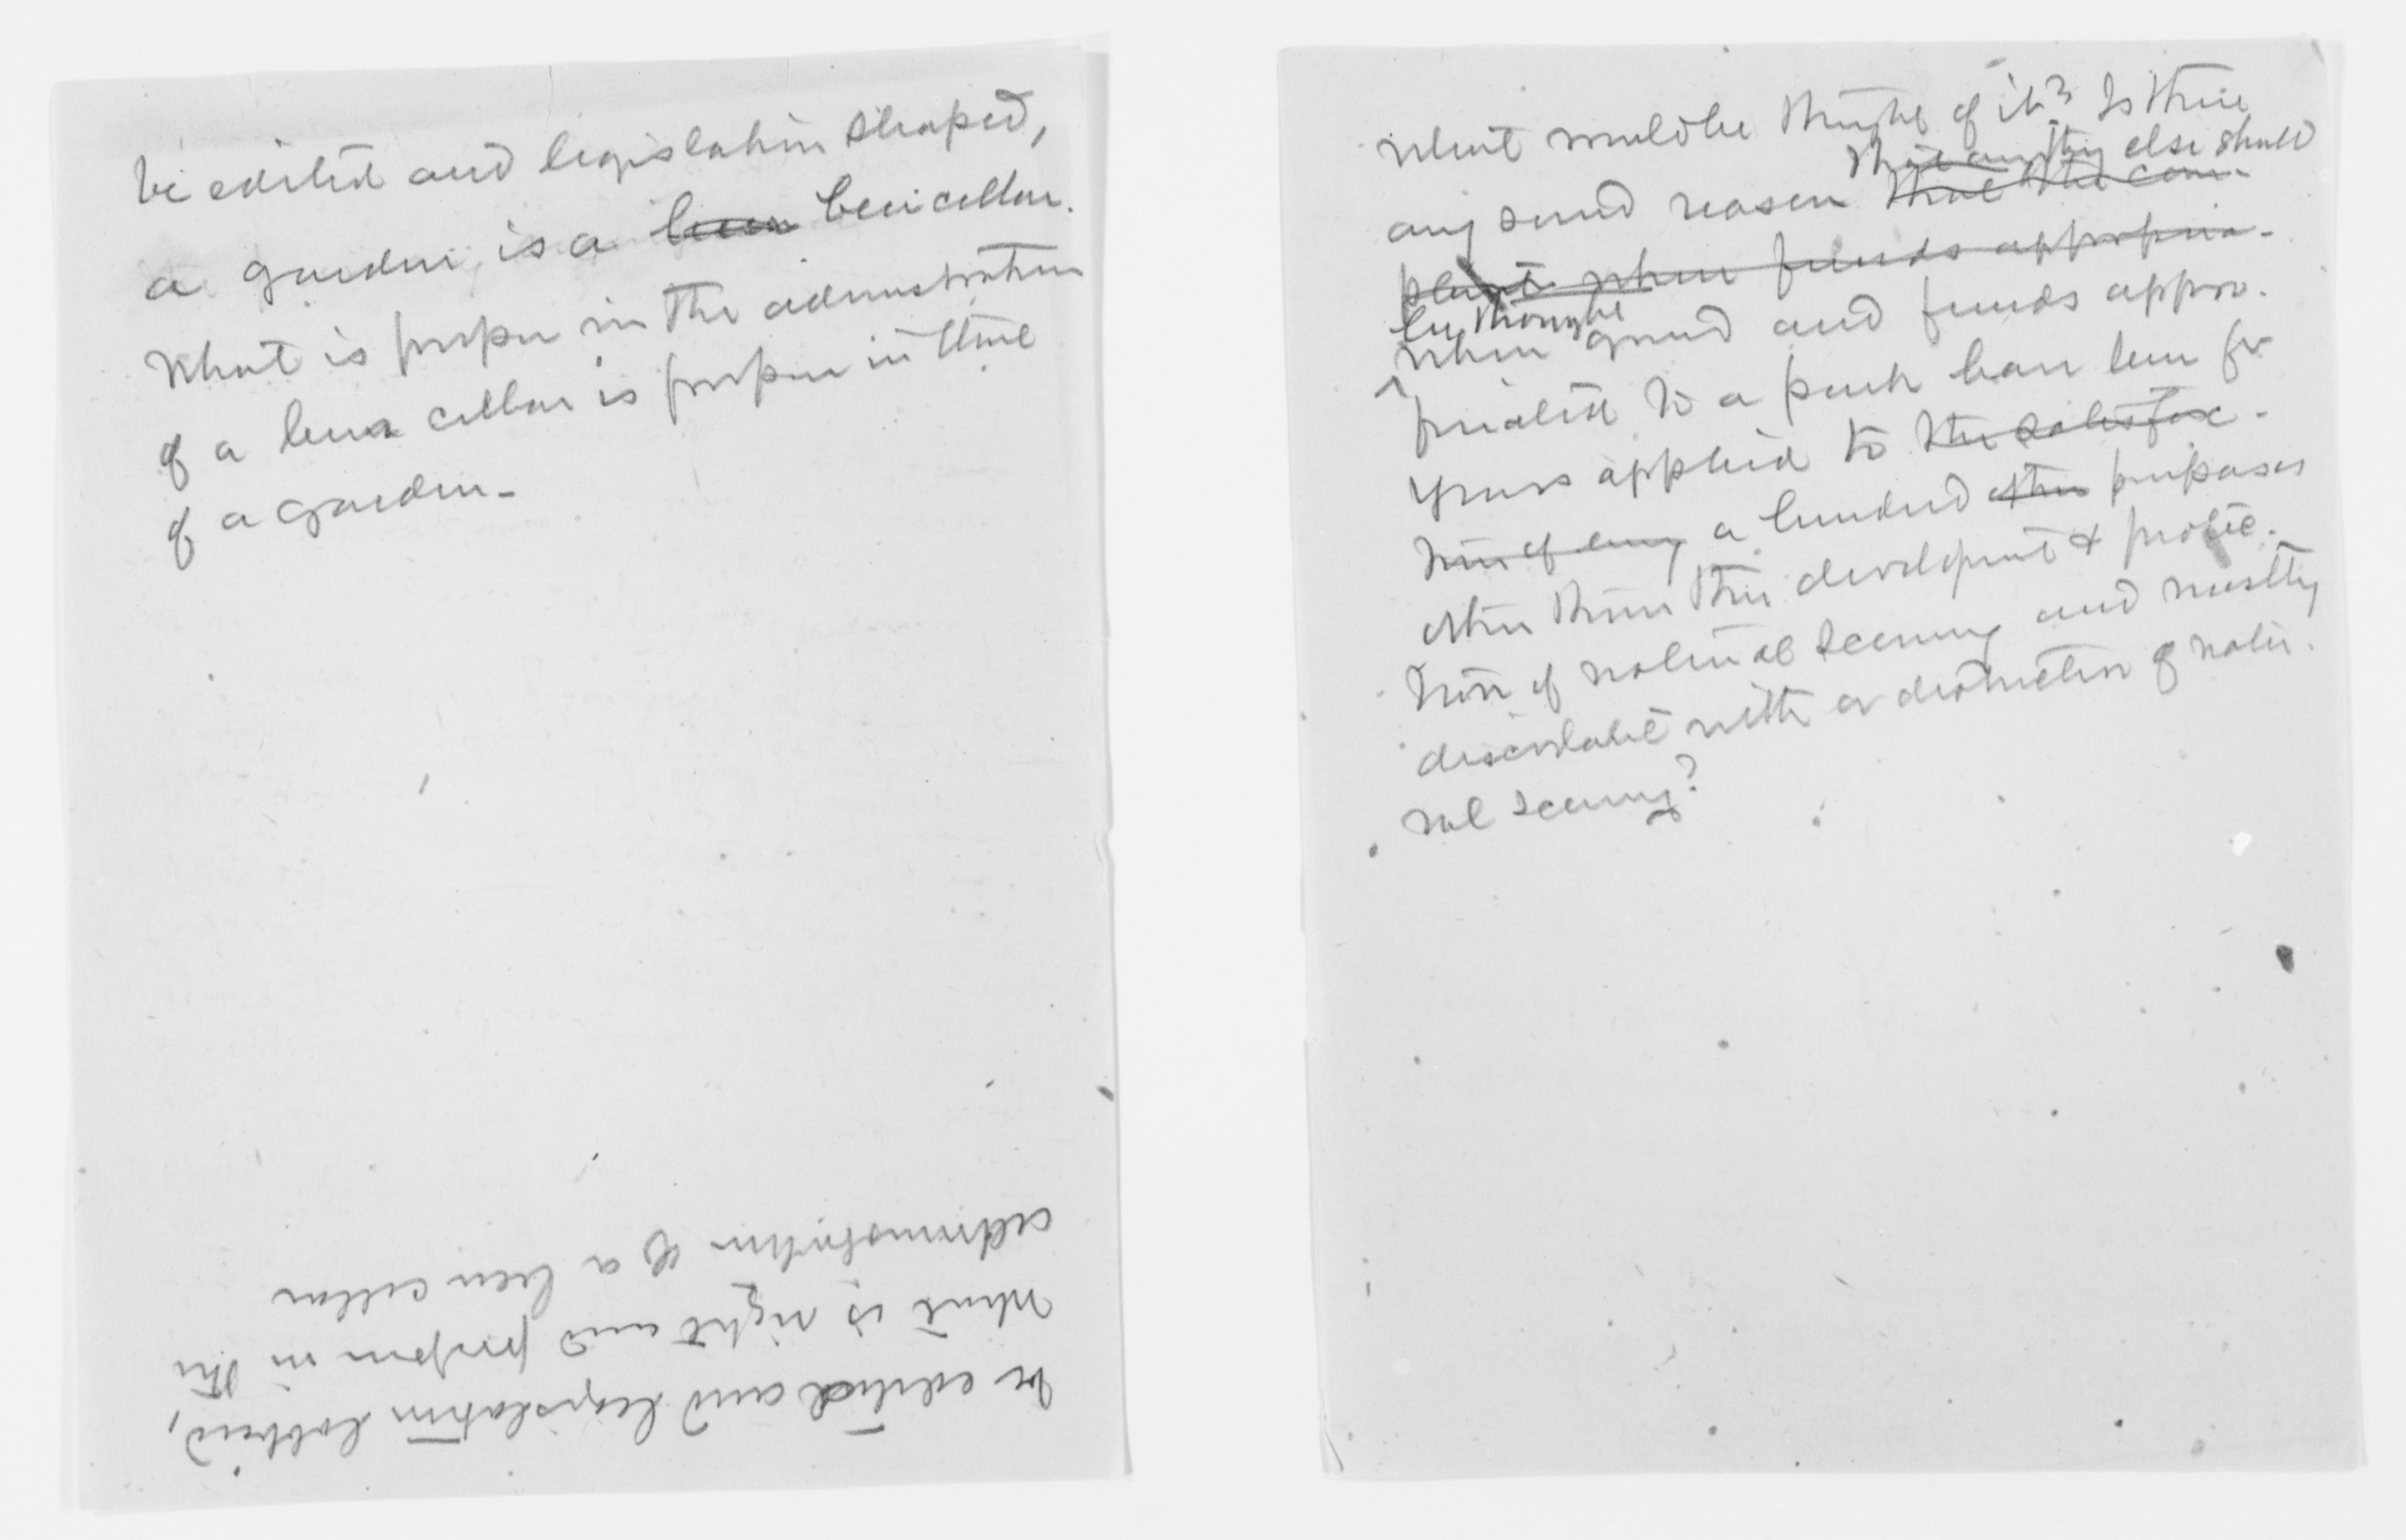 be edited and legislation shaped,
a garden, is a beer beer cellar.
What is proper in the administration
of a beer cellar is proper in that
of a garden.
be edited and legislation lobbied,
What is right and proper in the
administration of a beer cellar
What would be thought of it? Is there
that anything else should
any sound reason that the com-
plaint when funds appropria-
be thought
when ground and funds appro-
priated to a park have been for
years applied to the satisfac-
tion of any a hundred other purposes
other than the development & protec-
tion of natural scenery and mostly
discordant with a distinction of natu-
ral scenery?